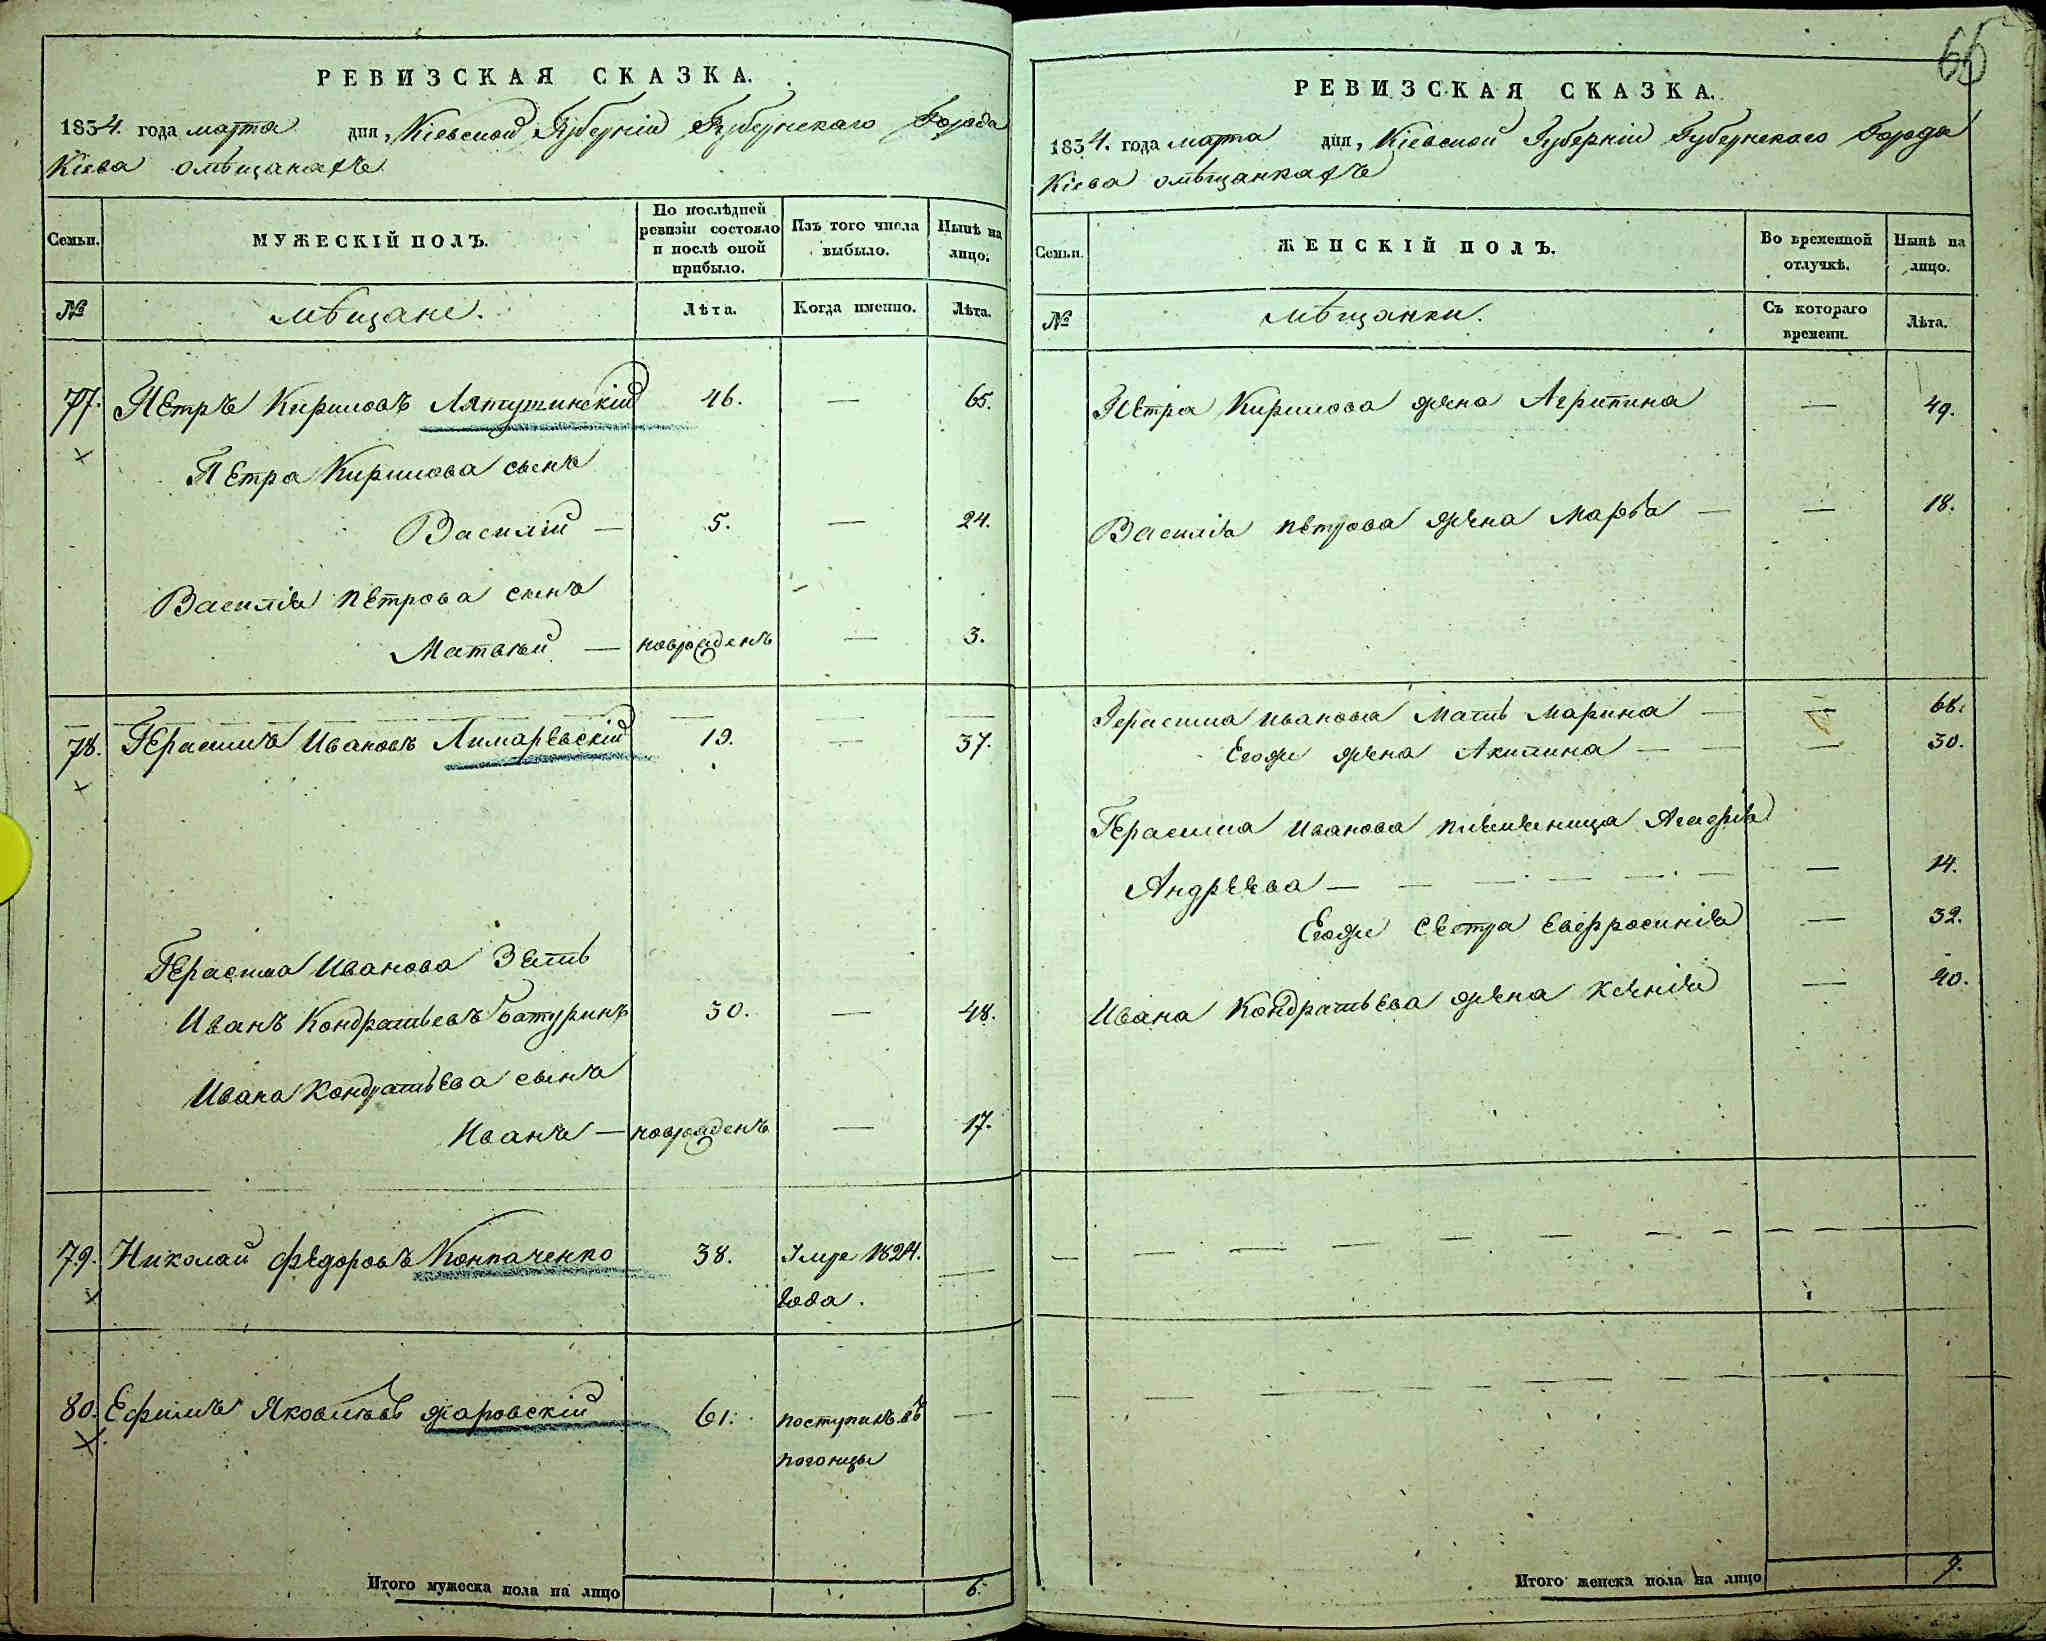 РЕВИЗСКАЯ СКАЗКА.
1834. года марта дня, Кіевской Губерніи Губернскаго Города
Кіева омѣщанахъ
Семьи.
МУЖЕСКІЙ ПОЛЪ.
По послѣдней ревизіи состояло и послѣ оной прибыло.
Изъ того числа выбыло.
Нынѣ на лицо.
№
мѣщане.
Лѣта.
Когда именно.
Лѣта.
77. Петръ Кириловъ 46. — 65.
Петра Кирилова сынъ
Василій — 5. — 24.
Василія Петрова сынъ
Матвѣй — новрожденъ — 3.
78. Герасимъ Ивановъ Лимаревскій 19. — 37.
Герасима Иванова Зять
Иванъ Кондратьевъ Батуринъ 30. — 48.
Ивана Кондратьева сынъ
Иванъ — новрожденъ — 17.
79. Николай Федоровъ Конпаченко 38. Умре 1824. —
года.
80. Ефимъ Яковлевъ Жаровскій 61. поступилъ въ —
погонцы
Итого мужеска пола на лицо 6.
66
РЕВИЗСКАЯ СКАЗКА.
1834. года марта дня, Кіевской Губерніи Губернскаго Города
Кіева омѣщанкахъ
Семьи.
ЖЕНСКІЙ ПОЛЪ.
Во временной отлучкѣ.
Нынѣ на лицо.
№
мѣщанки.
Съ котораго времени.
Лѣта.
Петра Кирилова жена Агрипина — 49.
Василія Петрова жена Марья — — 18.
Герасима Иванова Мать Марина — — 68.
Егоже жена Акилина — — — 30.
Герасима Иванова племѣнница Агафія
Андрѣева — — — — — — — 14.
Егоже сестра Евфросинія — 32.
Ивана Кондратьева жена Ксѣнія — 40.
Итого женска пола на лицо 7.